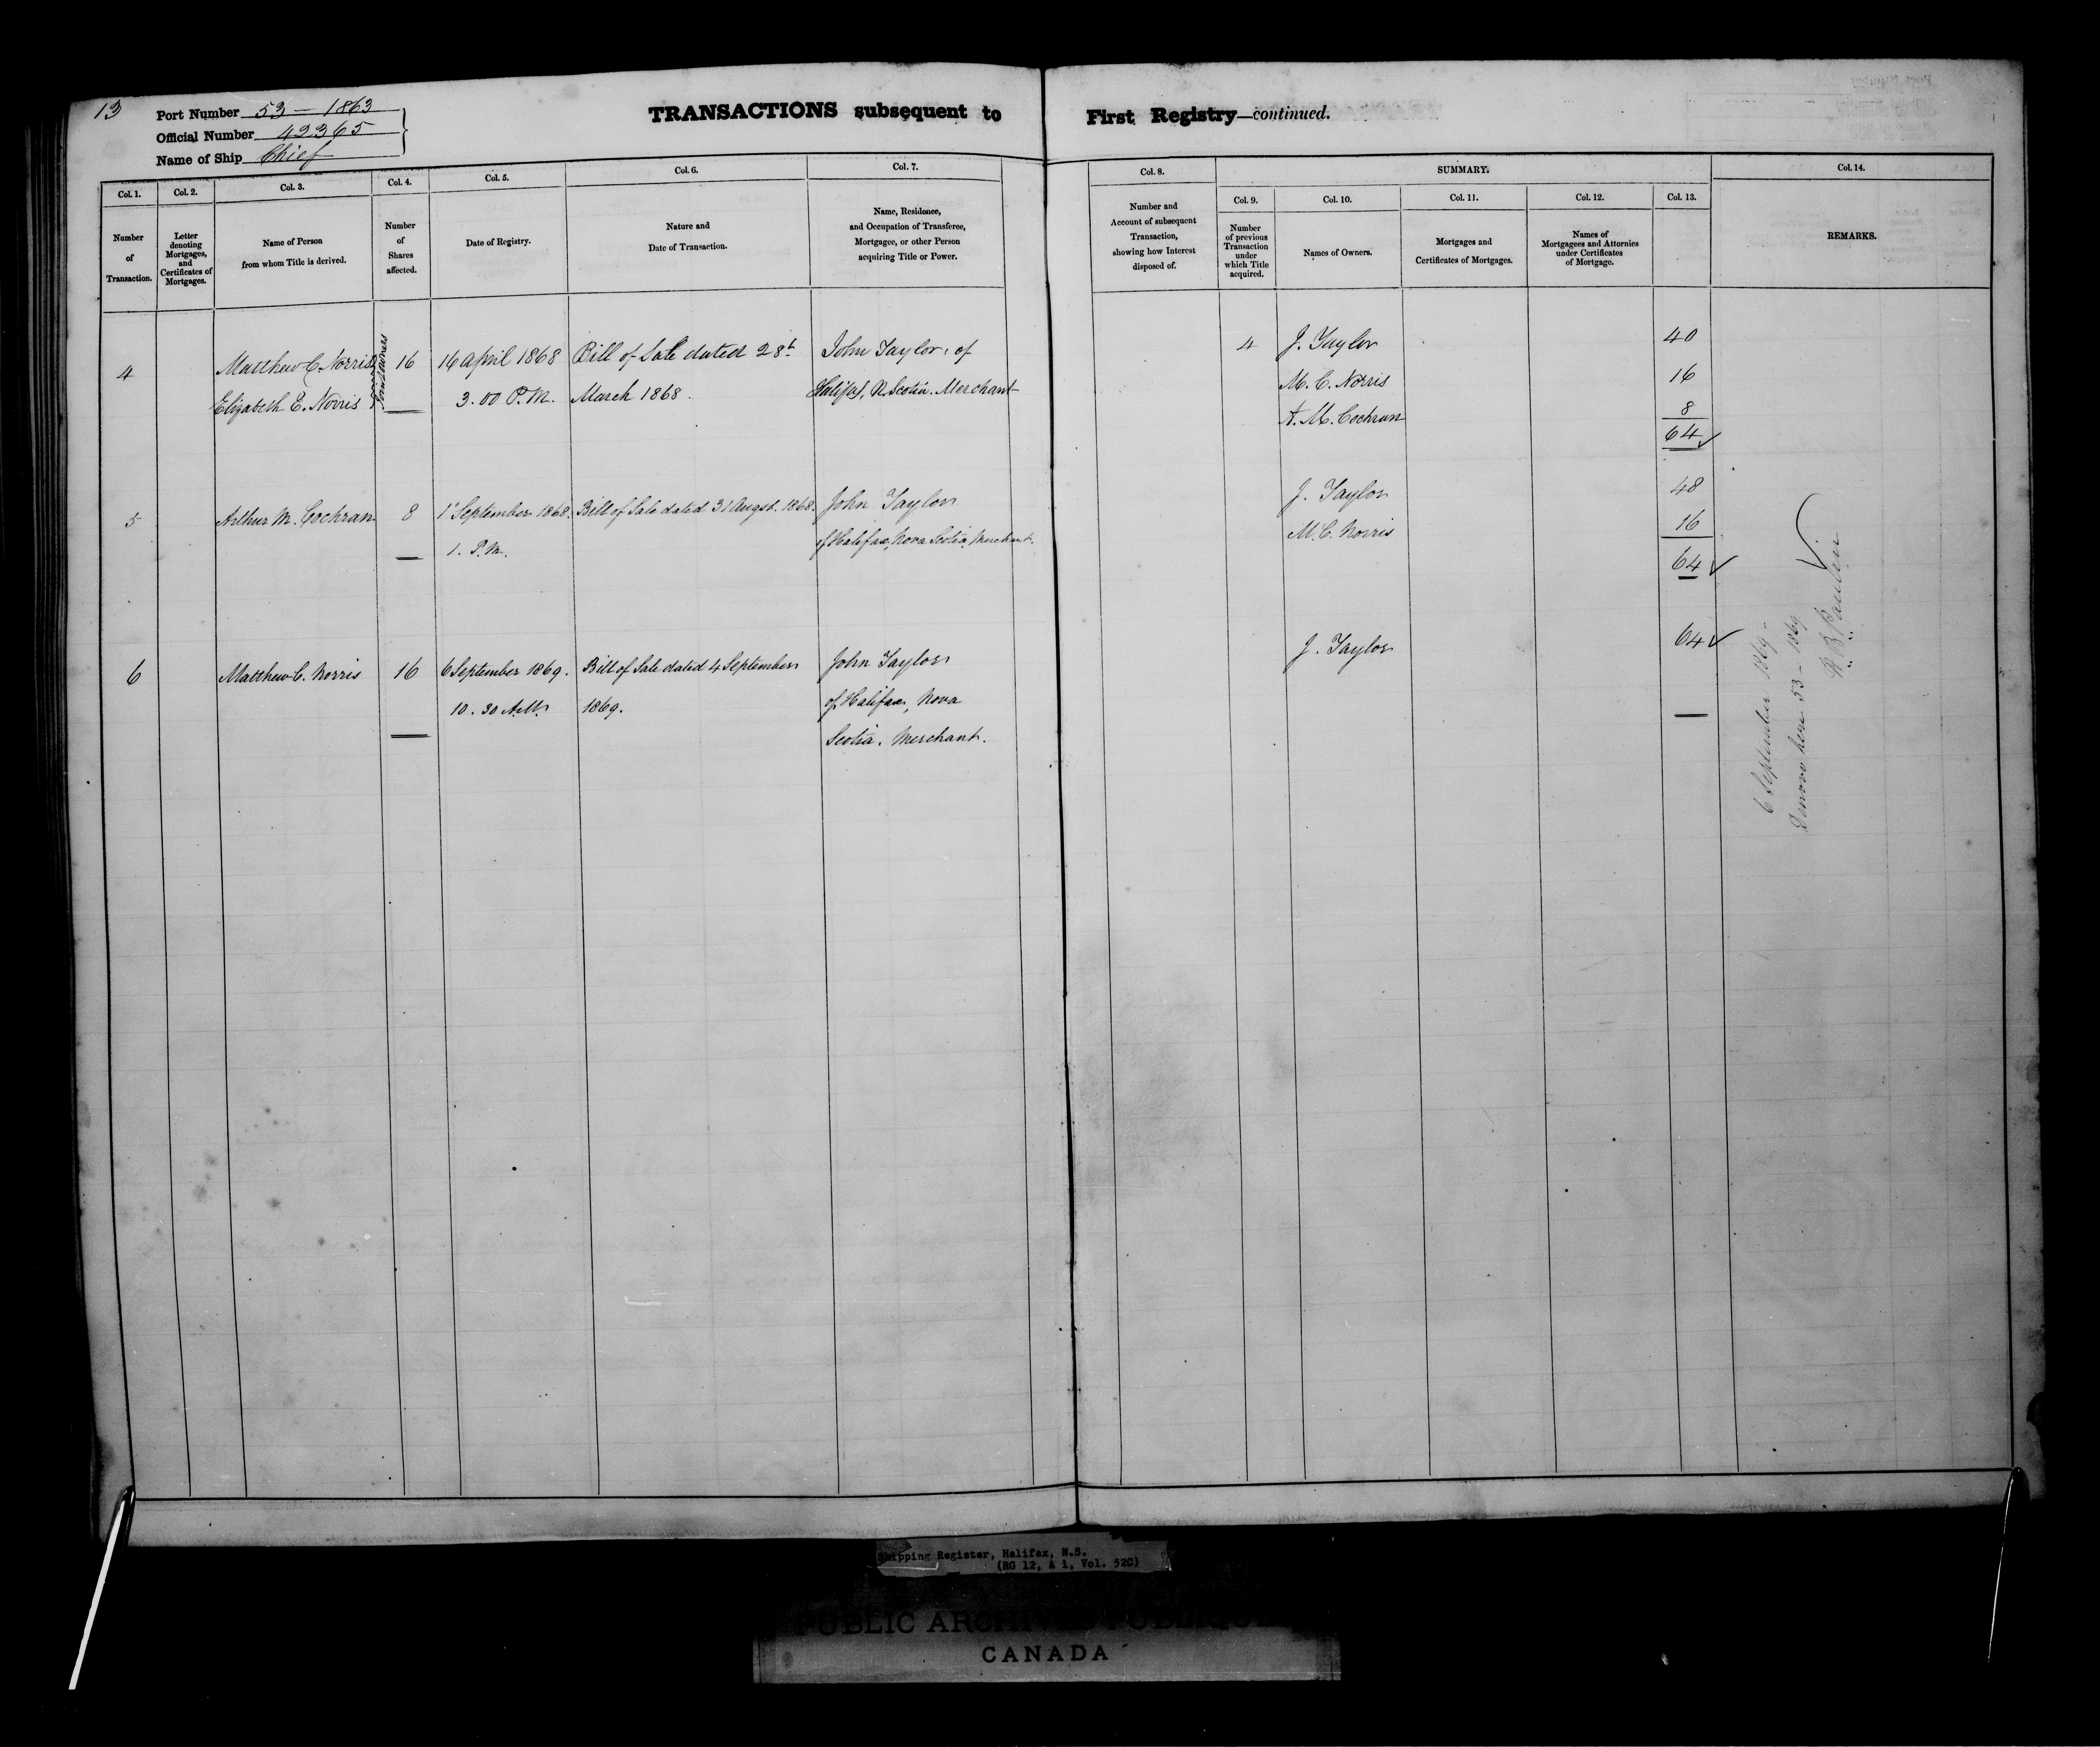 13
Port Number 53 — 1863
Official Number 42365
Name of Ship Chief
TRANSACTIONS subsequent to First Registry—continued.
Col. 1.
Number
of
Transaction.
Col. 2.
Letter
denoting
Mortgages,
and
Certificates of
Mortgages.
Col. 3.
Name of Person
from whom Title is derived.
Col. 4.
Number
of
Shares
affected.
Col. 5.
Date of Registry.
Col. 6.
Nature and
Date of Transaction.
Col. 7.
Name, Residence,
and Occupation of Transferee,
Mortgagee, or other Person
acquiring Title or Power.
Col. 8.
Number and
Account of subsequent
Transaction,
showing how Interest
disposed of.
SUMMARY.
Col. 9.
Number
of previous
Transaction
under
which Title
acquired.
Col. 10.
Names of Owners.
Col. 11.
Mortgages and
Certificates of Mortgages.
Col. 12.
Names of
Mortgagees and Attornies
under Certificates
of Mortgage.
Col. 13.
Col. 14.
REMARKS.
4
Matthew C. Norris
Elizabeth E. Norris
Joint owners
16
16 April 1868
3.00 P.M.
Bill of Sale dated 28t
March 1868.
John Taylor, of
Halifax, N. Scotia. Merchant
4
J. Taylor 40
M. C. Norris 16
A. M. Cochran 8
64
5
Arthur M. Cochran
8
1st September 1868.
1. P.M.
Bill of Sale dated 31 Augst. 1868.
John Taylor
of Halifax, Nova Scotia, Merchant.
J. Taylor 48
M. C. Norris 16
64
6
Matthew C. Norris
16
6 September 1869.
10. 30 A.M.
Bill of Sale dated 4 September
1869.
John Taylor
of Halifax, Nova
Scotia. Merchant.
J. Taylor 64
6 September 1869 -
Denovo here 53 - 1869
Shipping Register, Halifax, N.S.
(RG 12, A 1, Vol. 520)
PUBLIC ARCHIVES PUBLIQUES
CANADA